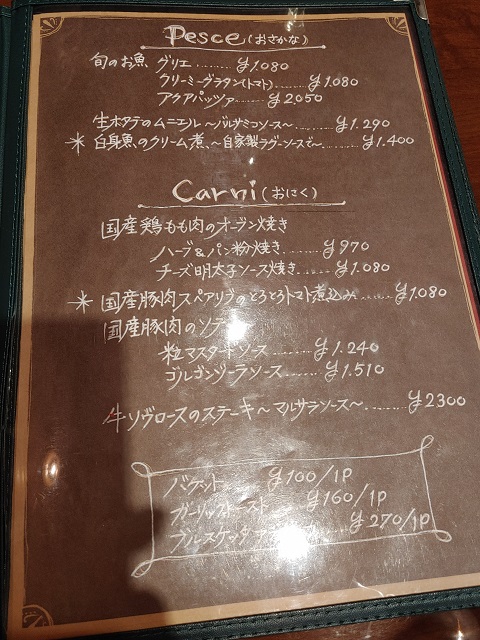 Pesce(おさかな)
旬のお魚 グリエ......¥1080
クリーミーグラタン(トマト)......¥1.080
アクアパッツァ......¥2050
生ホタテのムニエル〜バルサミコソース〜......¥1.290
*白身魚のクリーム煮、〜自家製ラグーソースで〜......¥1.400
Carni(おにく)
国産鶏もも肉のオーブン焼き
ハーブ&パン粉焼き......¥970
チーズ明太子ソース焼き......¥1.080
*国産豚肉スペアリブのとろとろトマト煮込み......¥1.080
国産豚肉のソテー
粒マスタードソース......¥1.240
ゴルゴンゾーラソース......¥1.510
牛ソヴロースのステーキ〜マルサラソース〜......¥2300
バゲット ¥100/1P
ガーリックトースト ¥160/1P
ブルスケッタ ¥270/1P